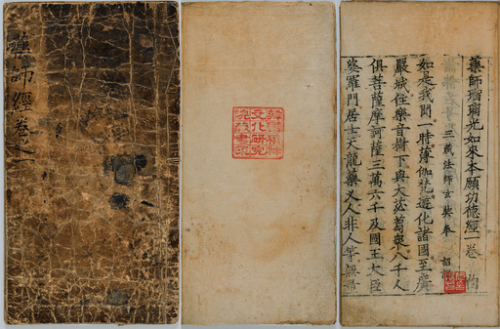 師經卷之一
文化研究
藥師瑠璃光如來本願功德經一卷
三藏法師玄奘奉 詔譯
如是我聞一時薄伽梵遊化諸國至廣
嚴城住樂音樹下與大苾蒭衆八千人
俱菩薩摩訶薩三萬六千及國王大臣
婆羅門居士天龍藥叉人非人等無量